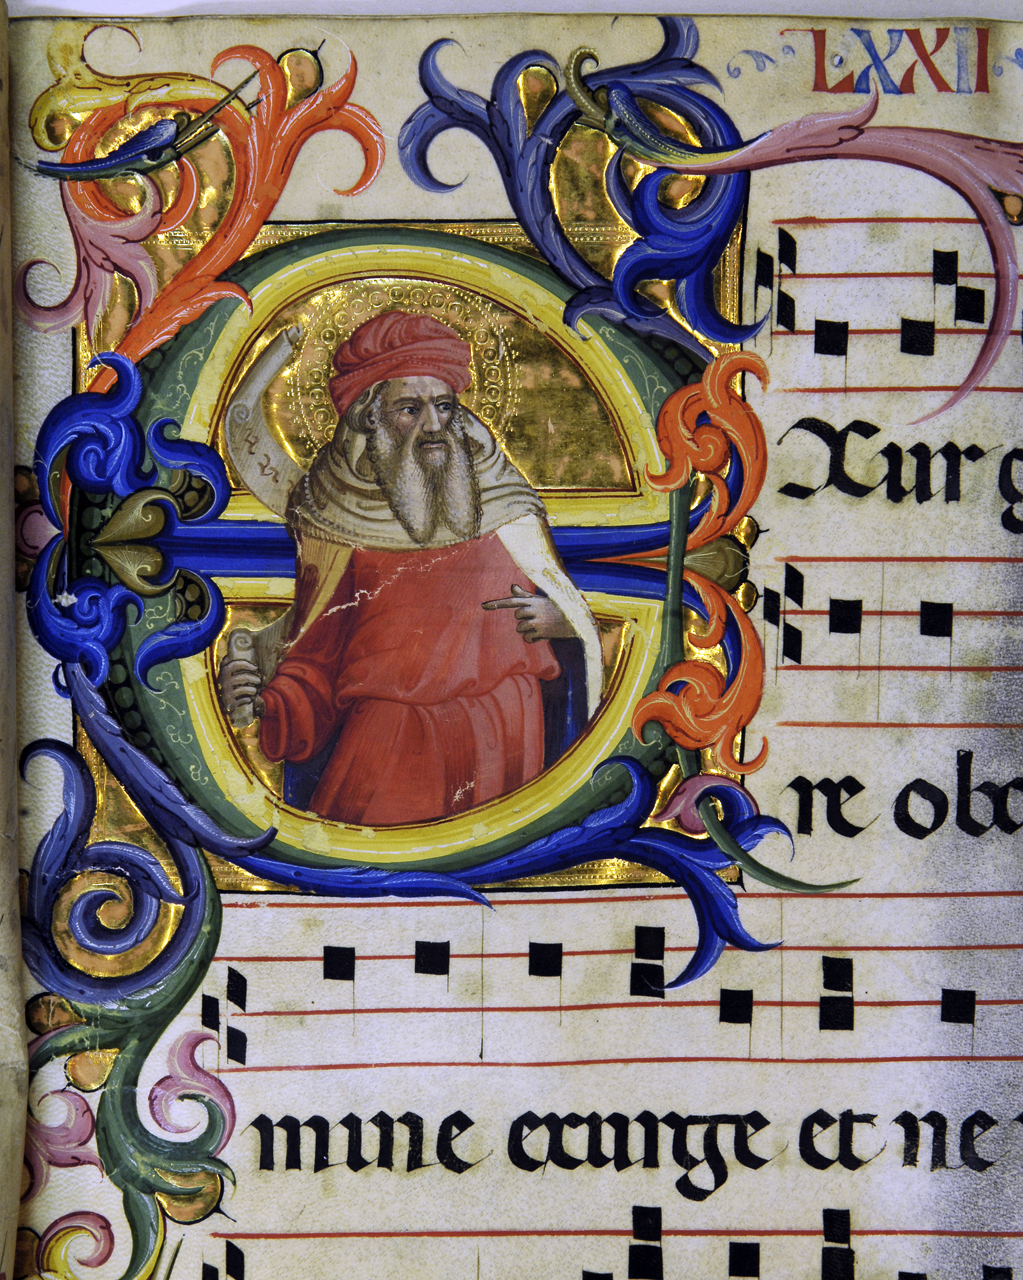 LXXII
EXurg
re obd
mine exurge et ne